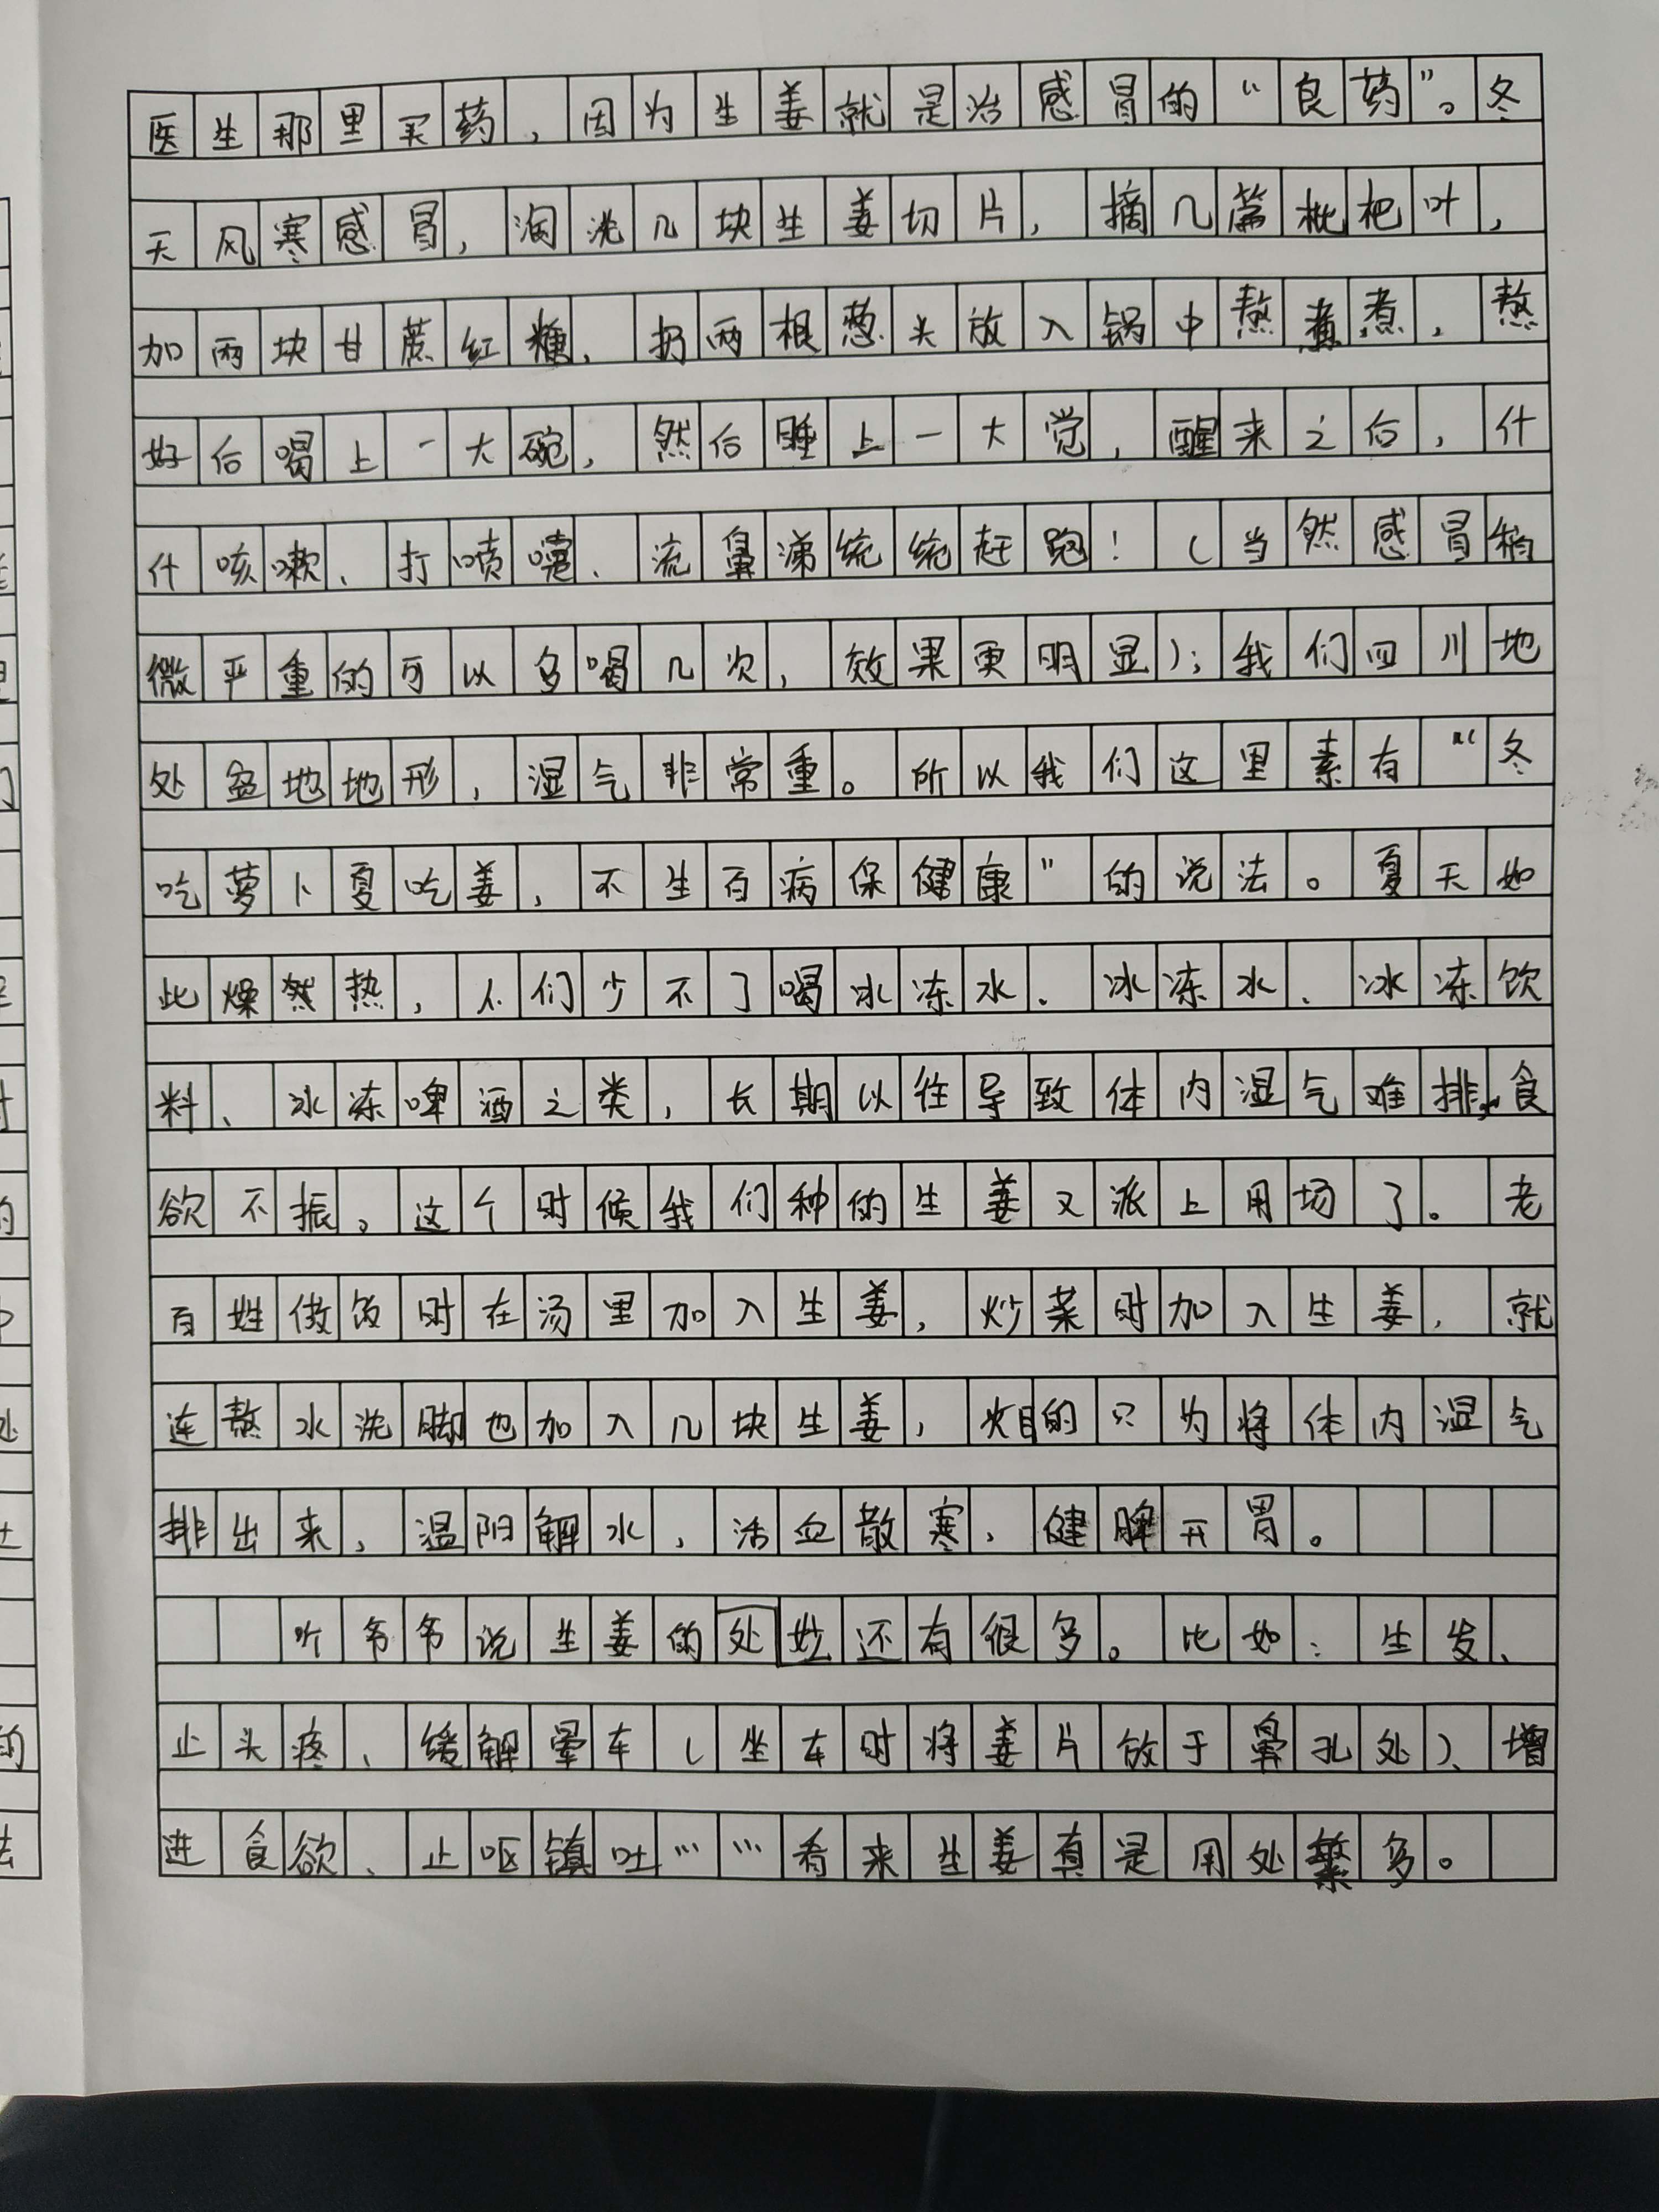 医生那里买药，因为生姜就是治感冒的“良药”。冬
天风寒感冒，淘洗几块生姜切片，摘几篇枇杷叶，
加两块甘蔗红糖、扔两根葱头放入锅中熬煮煮，熬
好后喝上一大碗，然后睡上一大觉，醒来之后，什
什咳嗽、打喷嚏、流鼻涕统统赶跑！（当然感冒稍
微严重的可以多喝几次，效果更明显）；我们四川地
处盆地地形，湿气非常重。所以我们这里素有“冬
吃萝卜夏吃姜，不生百病保健康”的说法。夏天如
此燥热，人们少不了喝冰冻水、冰冻水、冰冻饮
料、冰冻啤酒之类，长期以往导致体内湿气难排，食
欲不振。这个时候我们种的生姜又派上用场了。老
百姓做饭时在汤里加入生姜，炒菜时加入生姜，就
连熬水洗脚也加入几块生姜，目的只为将体内湿气
排出来，温阳解水，活血散寒，健脾开胃。
听爷爷说生姜的处妙还有很多。比如：生发、
止头疼、缓解晕车（坐车时将姜片放于鼻孔处）、增
进食欲、止呕镇吐……看来生姜真是用处繁多。